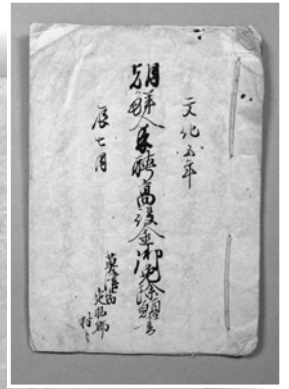 文化五年
朝鮮人来聘高役金御免除願書
辰七月
村々